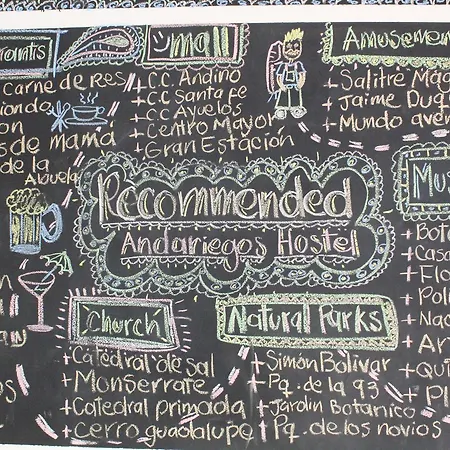 mall
Amusemen
Carne de Res
+ C.C Andino
+ C.C Santa fe
+ C.C Ayuelos
+ Centro Mayor
+ Gran Estación
+ Salitre Mág
+ Jaime Duq
+ Mundo aven
s de mamá
de la
Abuela
Recommended
Andariegos Hostel
Mus
+ Bota
+ Casa
+ Flo
+ Poli
+ Nac
+ Ar
+ Qui
+ Pl
Church
+ Catedral de sal
+ Monserrate
+ Catedral primada
+ Cerro guadalupe
Natural Parks
+ Simón Bolívar
+ Pq. de la 93
+ Jardin Botánico
+ Pq. de los novios